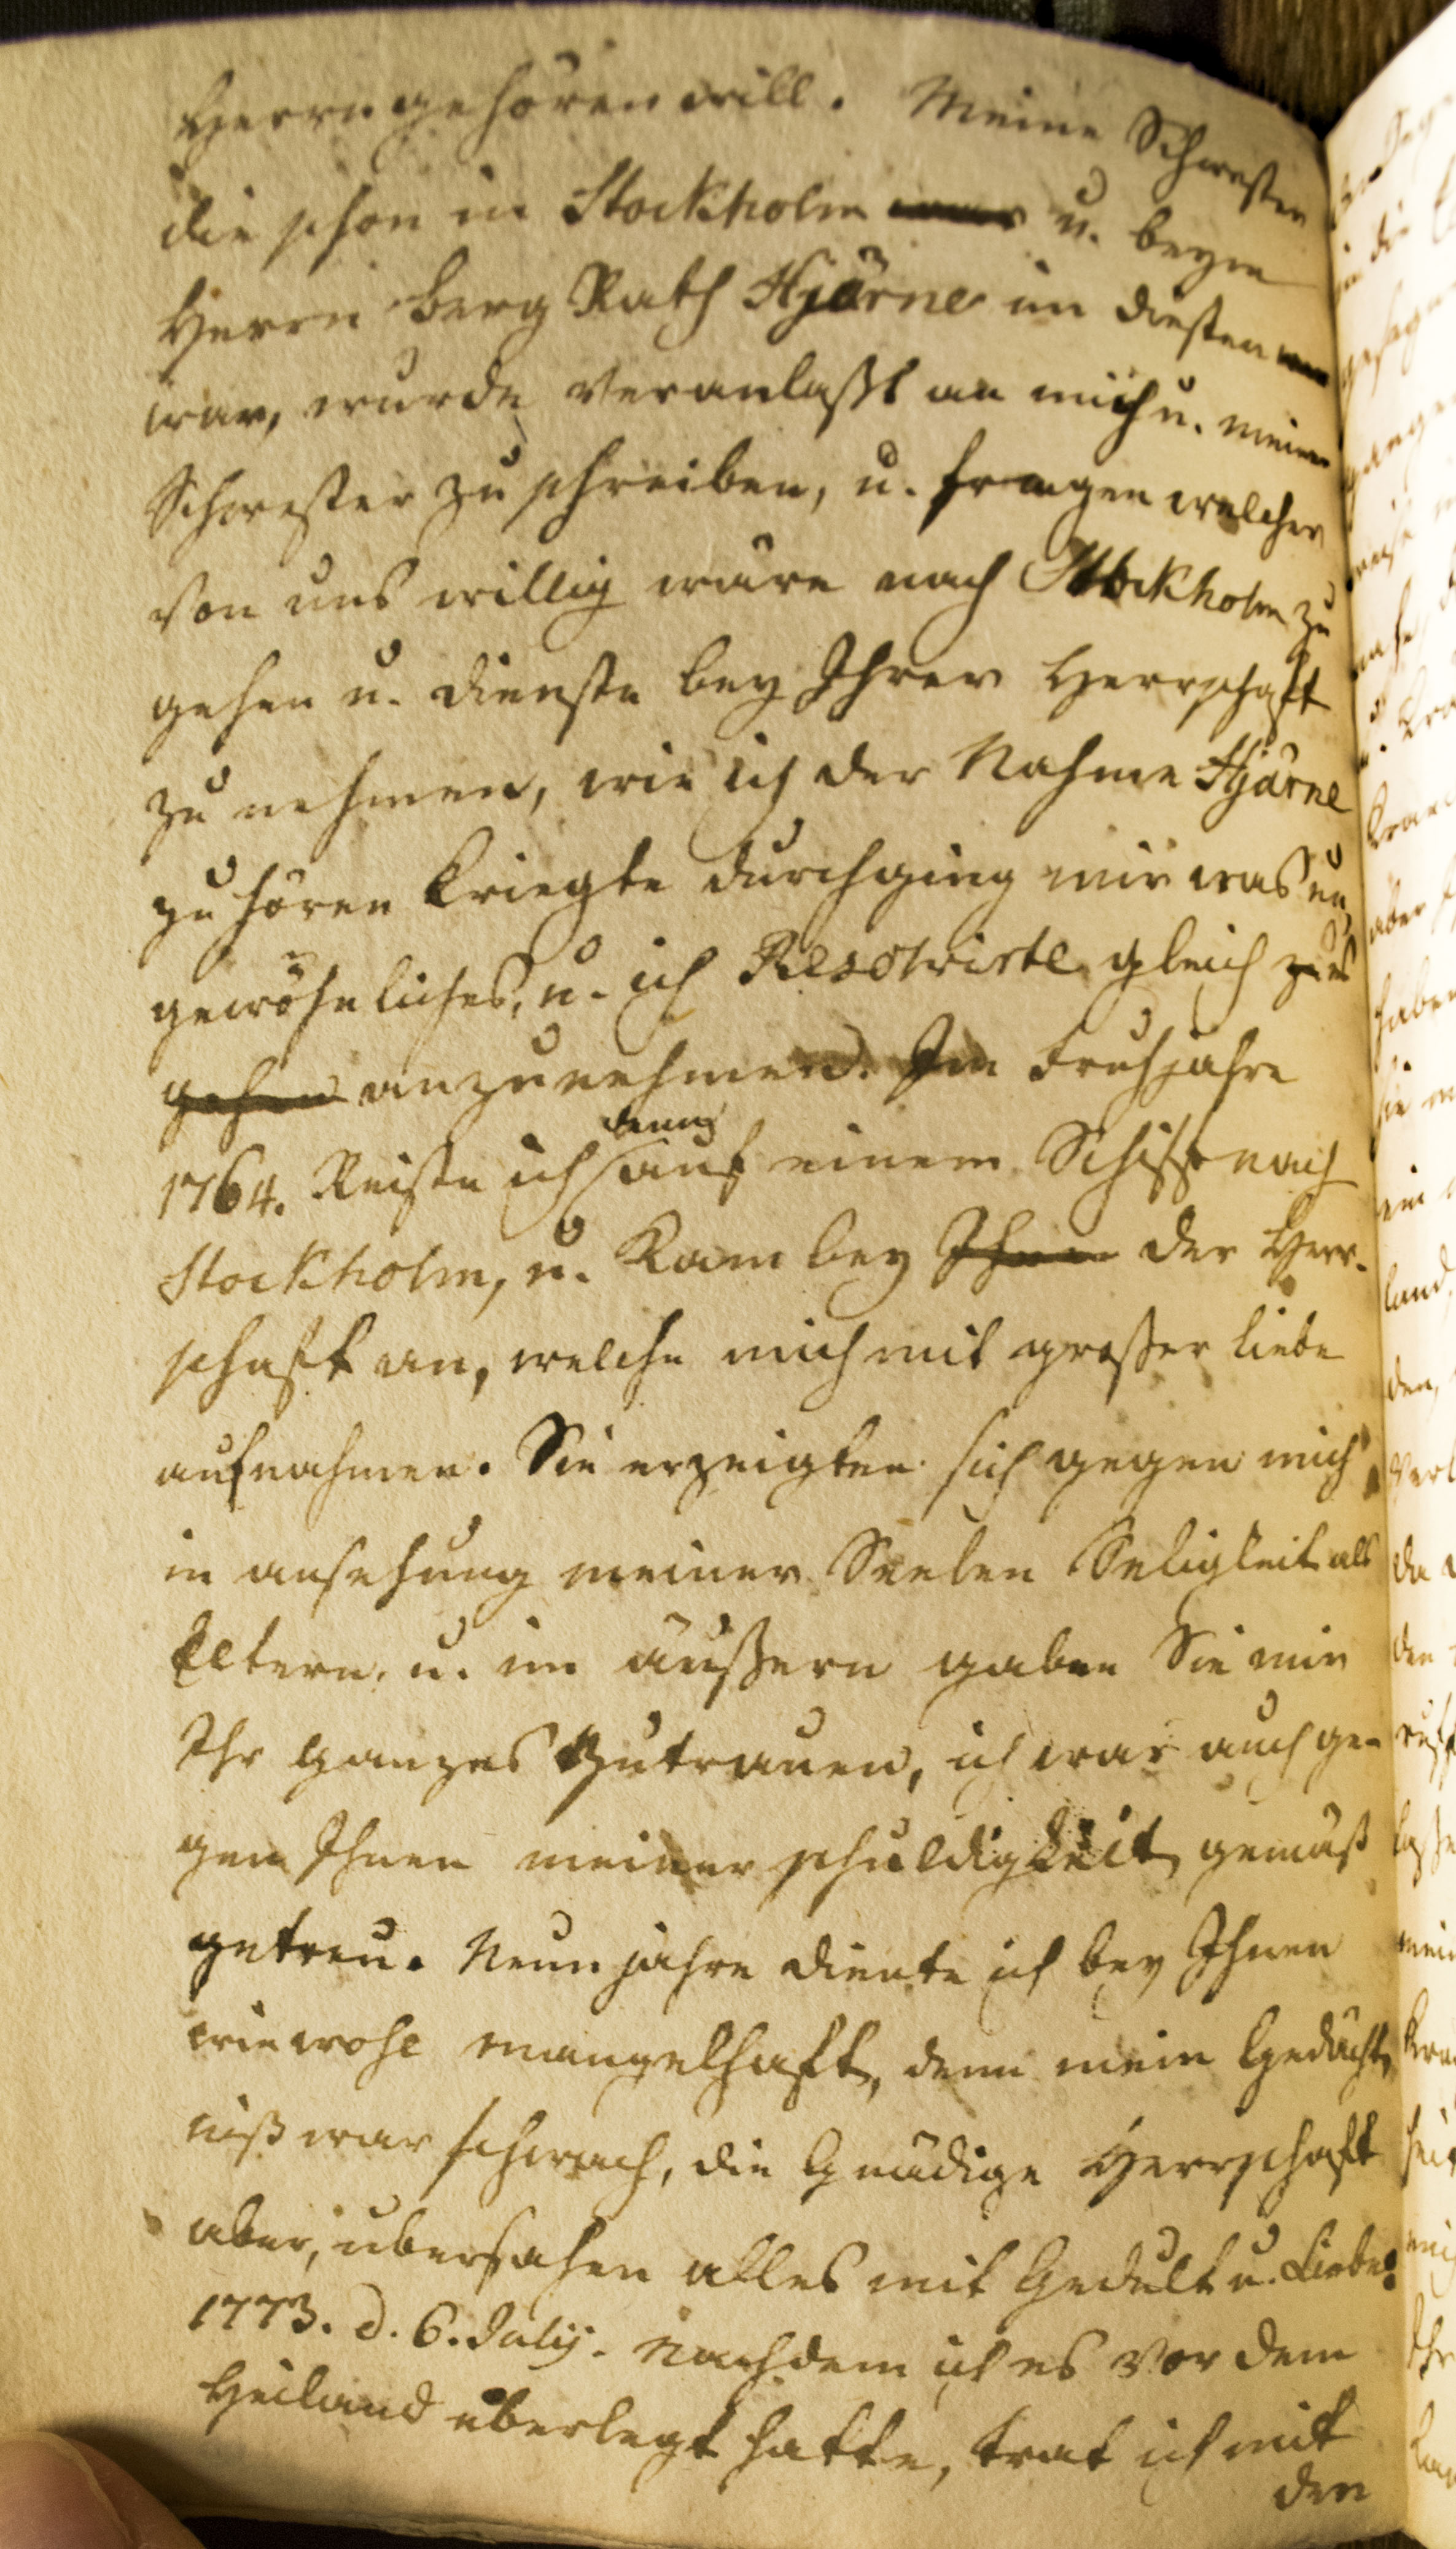 Herrn gehören will. Meine Schwester
die schon in Stockholm war u. beym
Herrn Berg Rath Hjärne im diensten
war, wurde veranlaßt an mich u. meine
Schwester zu schreiben, u. fragen welcher
von uns willig wäre nach Stockholm zu
gehen u. dienste bey Ihrer Herrschaft
zu nehmen, wie ich der Nahme Hjärne
zu hören kriegte durchging mir was un,
gewöhnliches, u. ich Resolvirte gleich zu es
gehen anzunehmen. Im Frühjahre
1764. Reiste ich denn auf einem Schiffe nach
Stockholm, u. kam bey Ihnen der Herr-
schaft an, welche mich mit großer liebe
aufnahmen. Sie erzeigten sich gegen mich
in ansehung meiner Seelen Seligkeit als
Eltern, u. im äußern gaben Sie mir
Ihr ganzes Zutrauen, ich war auch ge-
gen Ihnen meiner schuldigkeit gemäß
getreu. Neun jahre diente ich bey Ihnen
wiewohl mangelhaft, denn mein Gedächt,
niß war schwach, die Gnädige Herrschaft
aber, übersahen alles mit Gedult u. Liebe.
1773. d. 6. Julij. nachdem ich es vor dem
Heiland überlegt hatte, trat ich mit
den